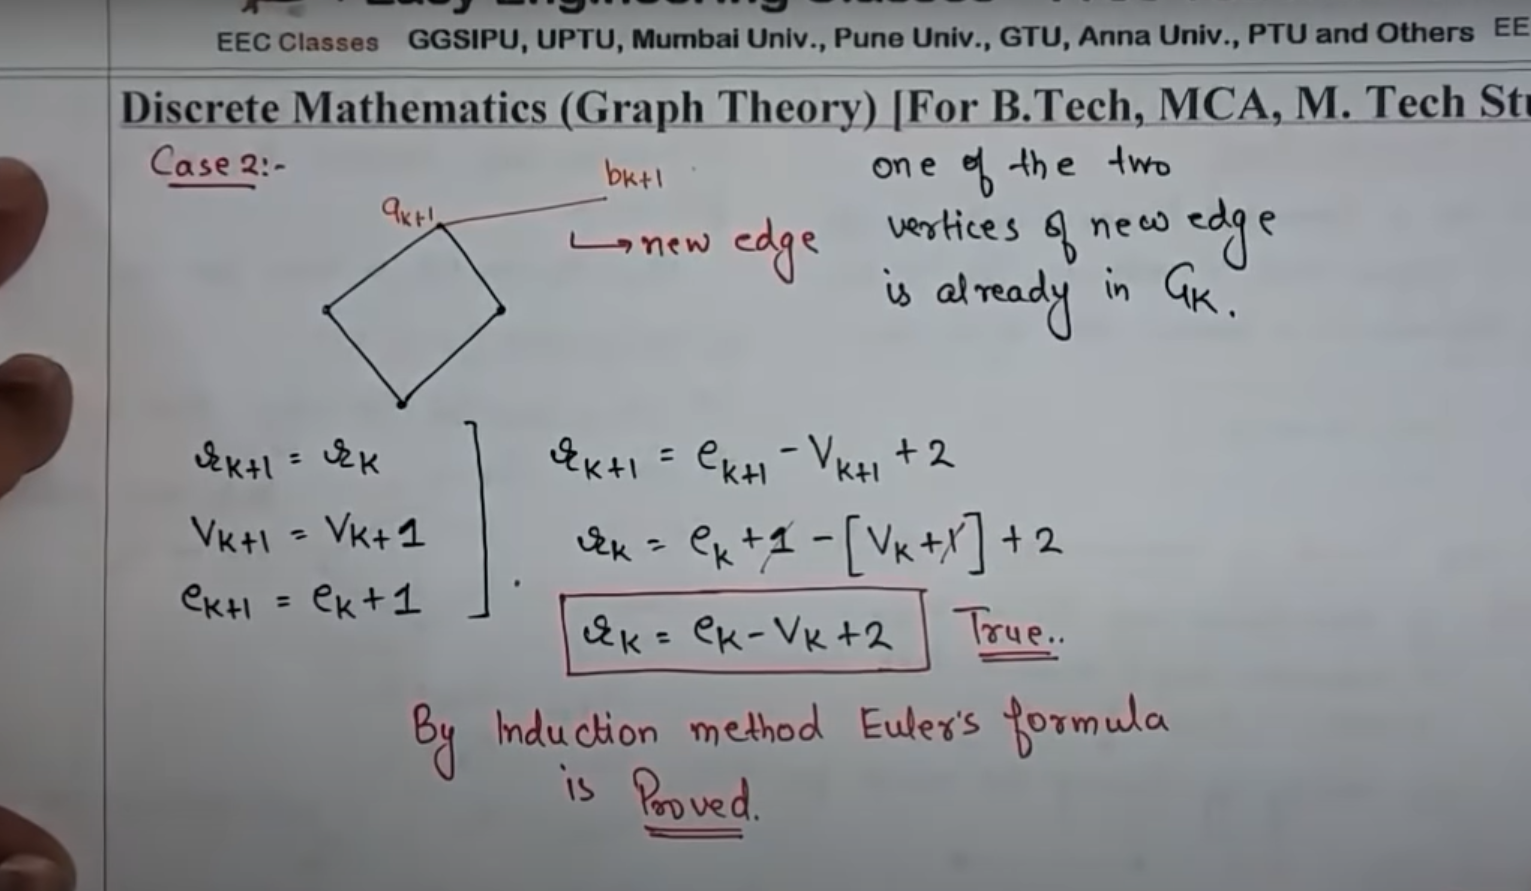 EEC Classes GGSIPU, UPTU, Mumbai Univ., Pune Univ., GTU, Anna Univ., PTU and Others EE
Discrete Mathematics (Graph Theory) [For B.Tech, MCA, M. Tech Stu
Case 2:-
a_{k+1}
b_{k+1}
↳ new edge
one of the two
vertices of new edge
is already in G_K.
r_{K+1} = r_K
V_{K+1} = V_K+1
e_{K+1} = e_K+1
r_{K+1} = e_{K+1} - V_{K+1} + 2
r_K = e_K + 1 - [V_K + 1] + 2
r_K = e_K - V_K + 2 True..
By Induction method Euler's formula
is Proved.